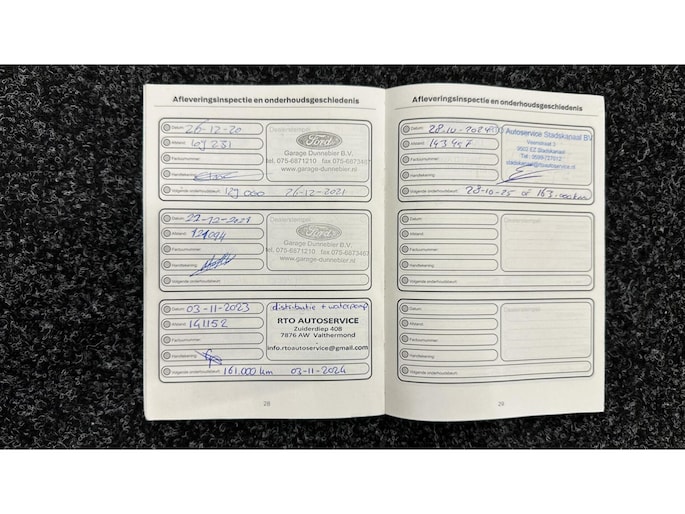 Afleveringsinspectie en onderhoudsgeschiedenis
Datum: 26-12-20
Dealerstempel:
Afstand: 109281
Ford
Factuurnummer:
Garage Dunnebier B.V.
tel. 075-6871210 fax 075-6873467
Handtekening:
www.garage-dunnebier.nl
Volgende onderhoudsbeurt: 129000 26-12-2021
Datum: 22-12-2021
Dealerstempel:
Afstand: 121094
Ford
Factuurnummer:
Garage Dunnebier B.V.
tel. 075-6871210 fax 075-6873467
Handtekening:
www.garage-dunnebier.nl
Volgende onderhoudsbeurt:
Datum: 03-11-2023
distributie + waterpomp
Afstand: 141152
RTO AUTOSERVICE
Factuurnummer:
Zuiderdiep 408
7876 AW Valthermond
Handtekening:
info.rtoautoservice@gmail.com
Volgende onderhoudsbeurt: 161.000 km 03-11-2024
28
Afleveringsinspectie en onderhoudsgeschiedenis
Datum: 28-10-2024
Autoservice Stadskanaal BV
Afstand: 143957
Veenstraat 3
9502 EZ Stadskanaal
Factuurnummer:
Tel.: 0599-721012
Handtekening:
Volgende onderhoudsbeurt: 28-10-25 of 163.000km
Datum:
Dealerstempel:
Afstand:
Factuurnummer:
Handtekening:
Volgende onderhoudsbeurt:
Datum:
Dealerstempel:
Afstand:
Factuurnummer:
Handtekening:
Volgende onderhoudsbeurt: